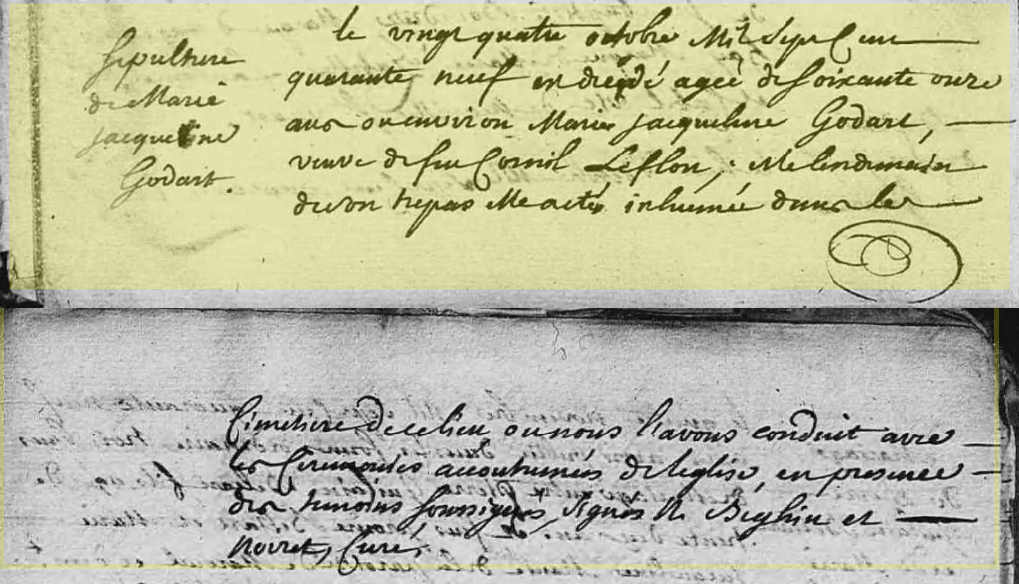 Sepulture
de Marie
jacqueline
Godart.
le vingt quatre octobre Mil Sept Cent
quarante neuf est decedé agée de soixante onze
ans ou environ Marie jacqueline Godart,
veuve de feu Cornil Leflon, & le lendemain
de son trepas elle a eté inhumée dans le
Cimetiere de ce lieu ou nous l'avons conduit avec
les Ceremonies accoutumées de l'eglise, en presence
des temoins soussignés, signés Beghin et
Noiret, Curé